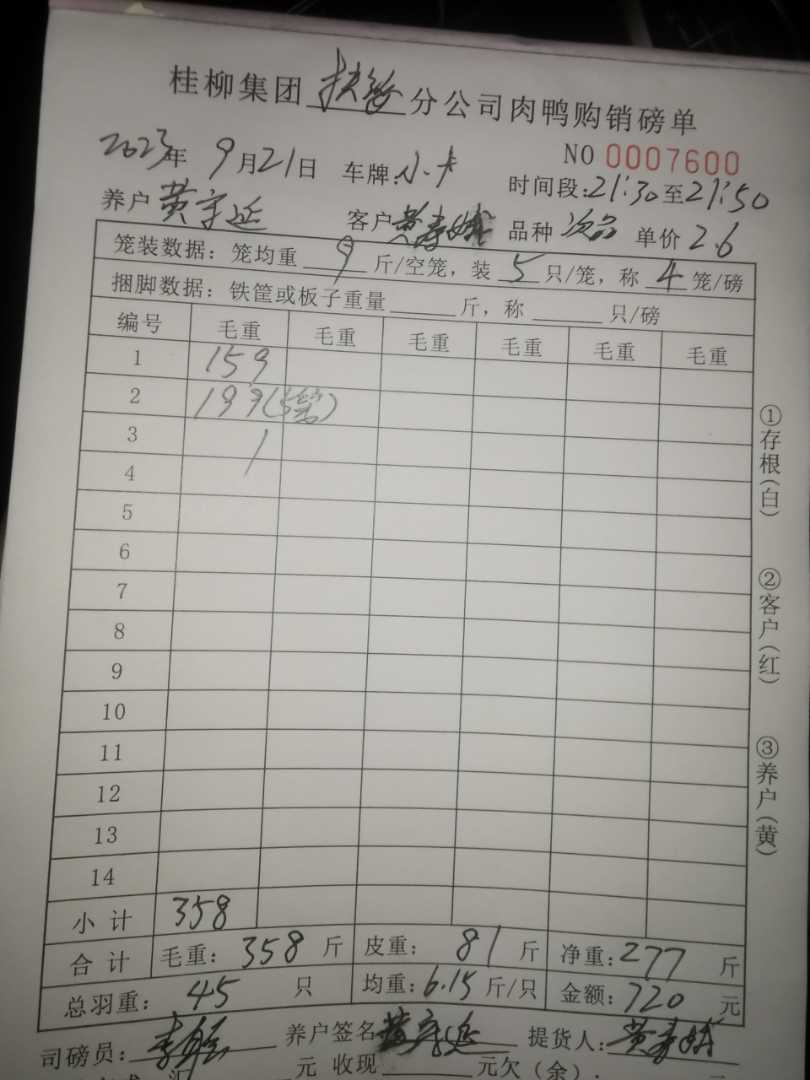 桂柳集团扶绥分公司肉鸭购销磅单
NO 0007600
2023年9月21日 车牌:小卡 时间段:21:30至21:50
养户 黄守延 客户 品种 次品 单价 2.6
笼装数据: 笼均重 9 斤/空笼, 装 5 只/笼, 称 4 笼/磅
捆脚数据: 铁筐或板子重量 斤, 称 只/磅
编号 毛重 毛重 毛重 毛重 毛重 毛重
1 159
2 199(5笼)
3 /
4
5
6
7
8
9
10
11
12
13
14
小计 358
合计 毛重: 358 斤 皮重: 81 斤 净重: 277 斤
总羽重: 45 只 均重: 6.15 斤/只 金额: 720 元
司磅员: 养户签名 黄守延 提货人:
元 收现 元欠(余).
①存根(白)
②客户(红)
③养户(黄)